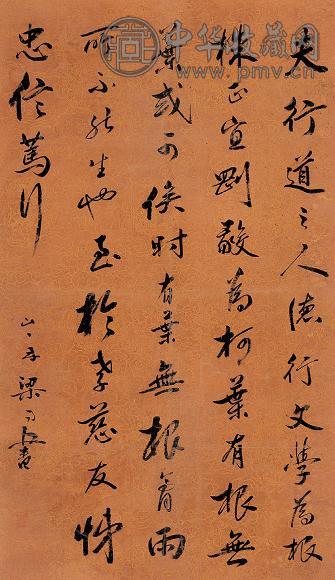 夫行道之人德行文學為根
株正直剛毅為柯葉有根無
葉或可俟時有葉無根膏雨
所不能生也至於孝慈友悌
忠信篤行
山舟梁同書
中华收藏网
www.pmv.cn